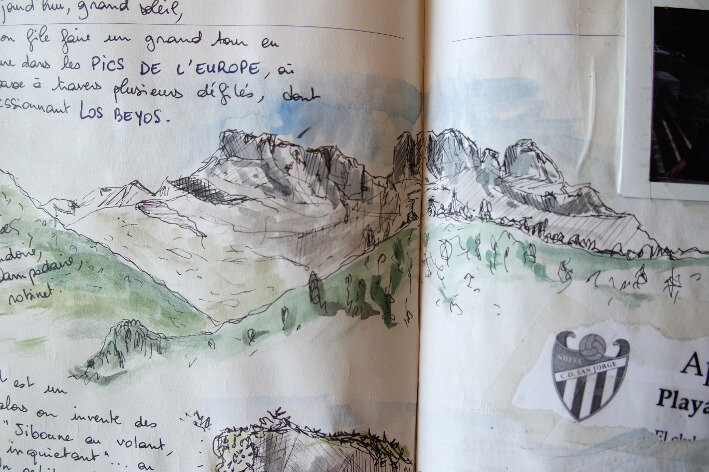 jourd'hui, grand soleil,
on file faire un grand tour en
dans les PICS DE L'EUROPE, où
à travers plusieurs défilés, dont
essionnant LOS BEYOS.
robinet
l est un
alors on invente des
"Jiboune au volant,
inquiétant"... au
NUEVA
C.D. SAN JORGE
Ap
Playa
El club